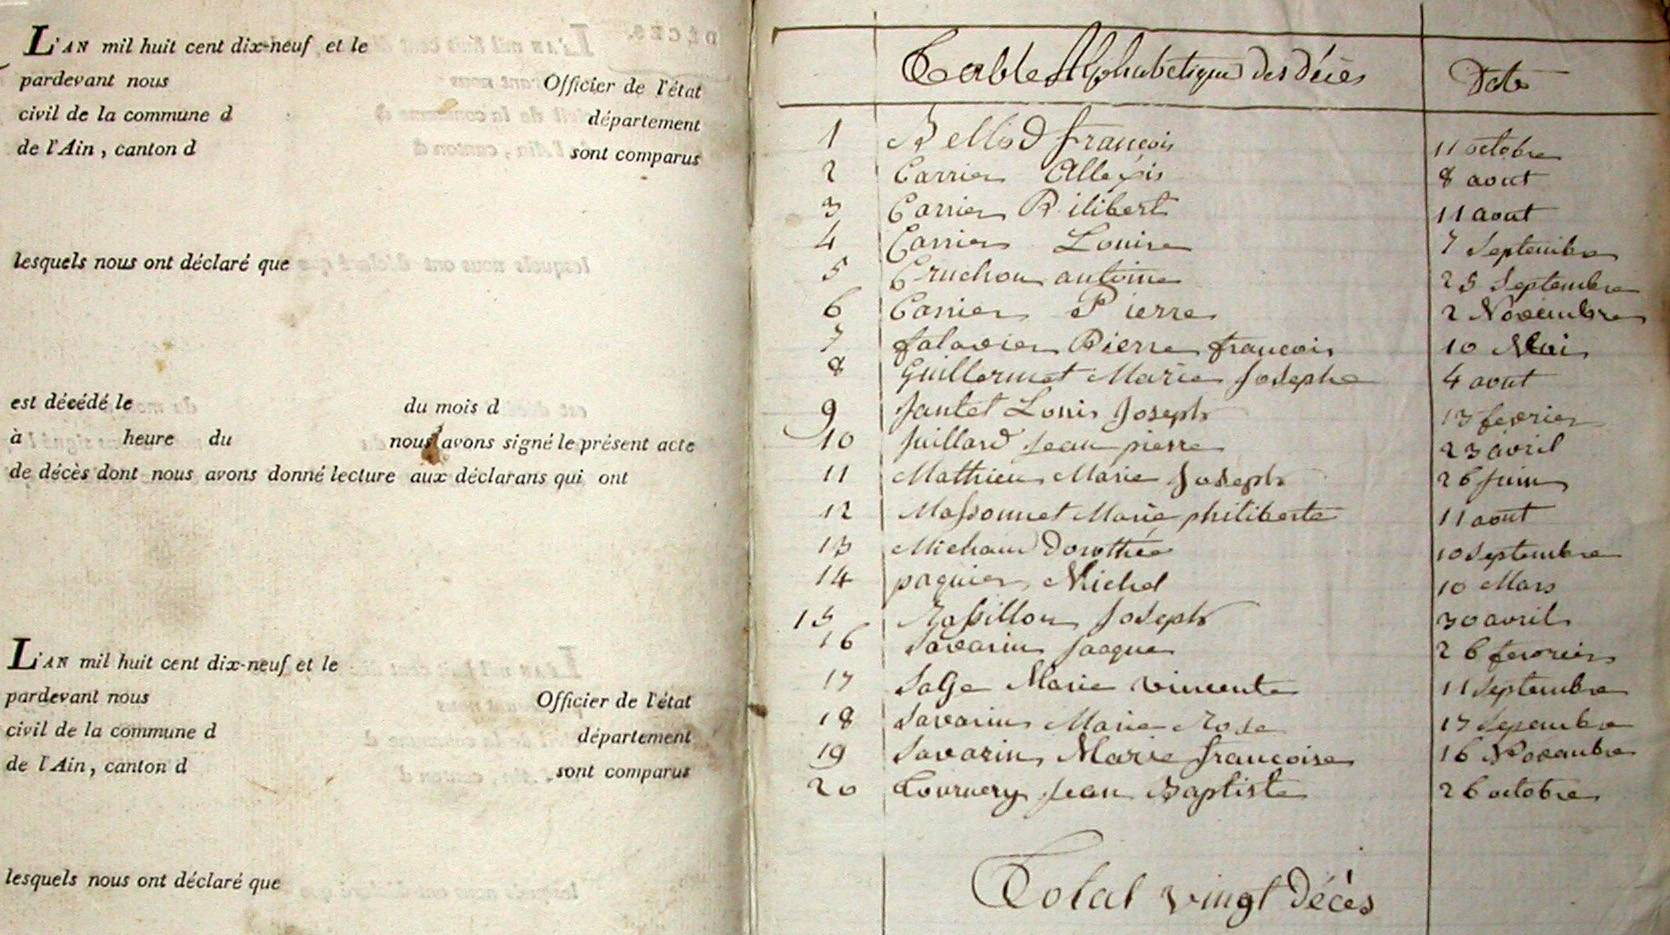 L'AN mil huit cent dix-neuf et le
pardevant nous Officier de l'état
civil de la commune d département
de l'Ain, canton d sont comparus
lesquels nous ont déclaré que
est décédé le du mois d
à heure du nous avons signé le présent acte
de décès dont nous avons donné lecture aux déclarans qui ont
L'AN mil huit cent dix-neuf et le
pardevant nous Officier de l'état
civil de la commune d département
de l'Ain, canton d sont comparus
lesquels nous ont déclaré que
Table Alphabetique des décès Date
1 Bellod françois 11 octobre
2 Carrier Allexis 8 aout
3 Carrier Pilibert 11 aout
4 Carrier Louise 7 Septembre
5 Cruchon antoine 25 Septembre
6 Carrier Pierre 2 Novembre
7 falavier Pierre françois 10 Mai
8 Guillermet Marie Josephe 4 aout
9 Jantet Louis Joseph 13 fevrier
10 Juillard Jean pierre 23 avril
11 Mathieu Marie Joseph 26 Juin
12 Massonnet Marie philiberte 11 aout
13 Michaud Dorothée 10 septembre
14 paquier Michel 10 Mars
15 Rassillon Joseph 30 avril
16 Savarin Jacque 26 fevrier
17 Sage Marie vincente 11 Septembre
18 Savarin Marie Rose 17 Sepembre
19 Savarin Marie francoise 16 Novembre
20 Tournery Jean Baptiste 26 octobre
Total vingt Décès